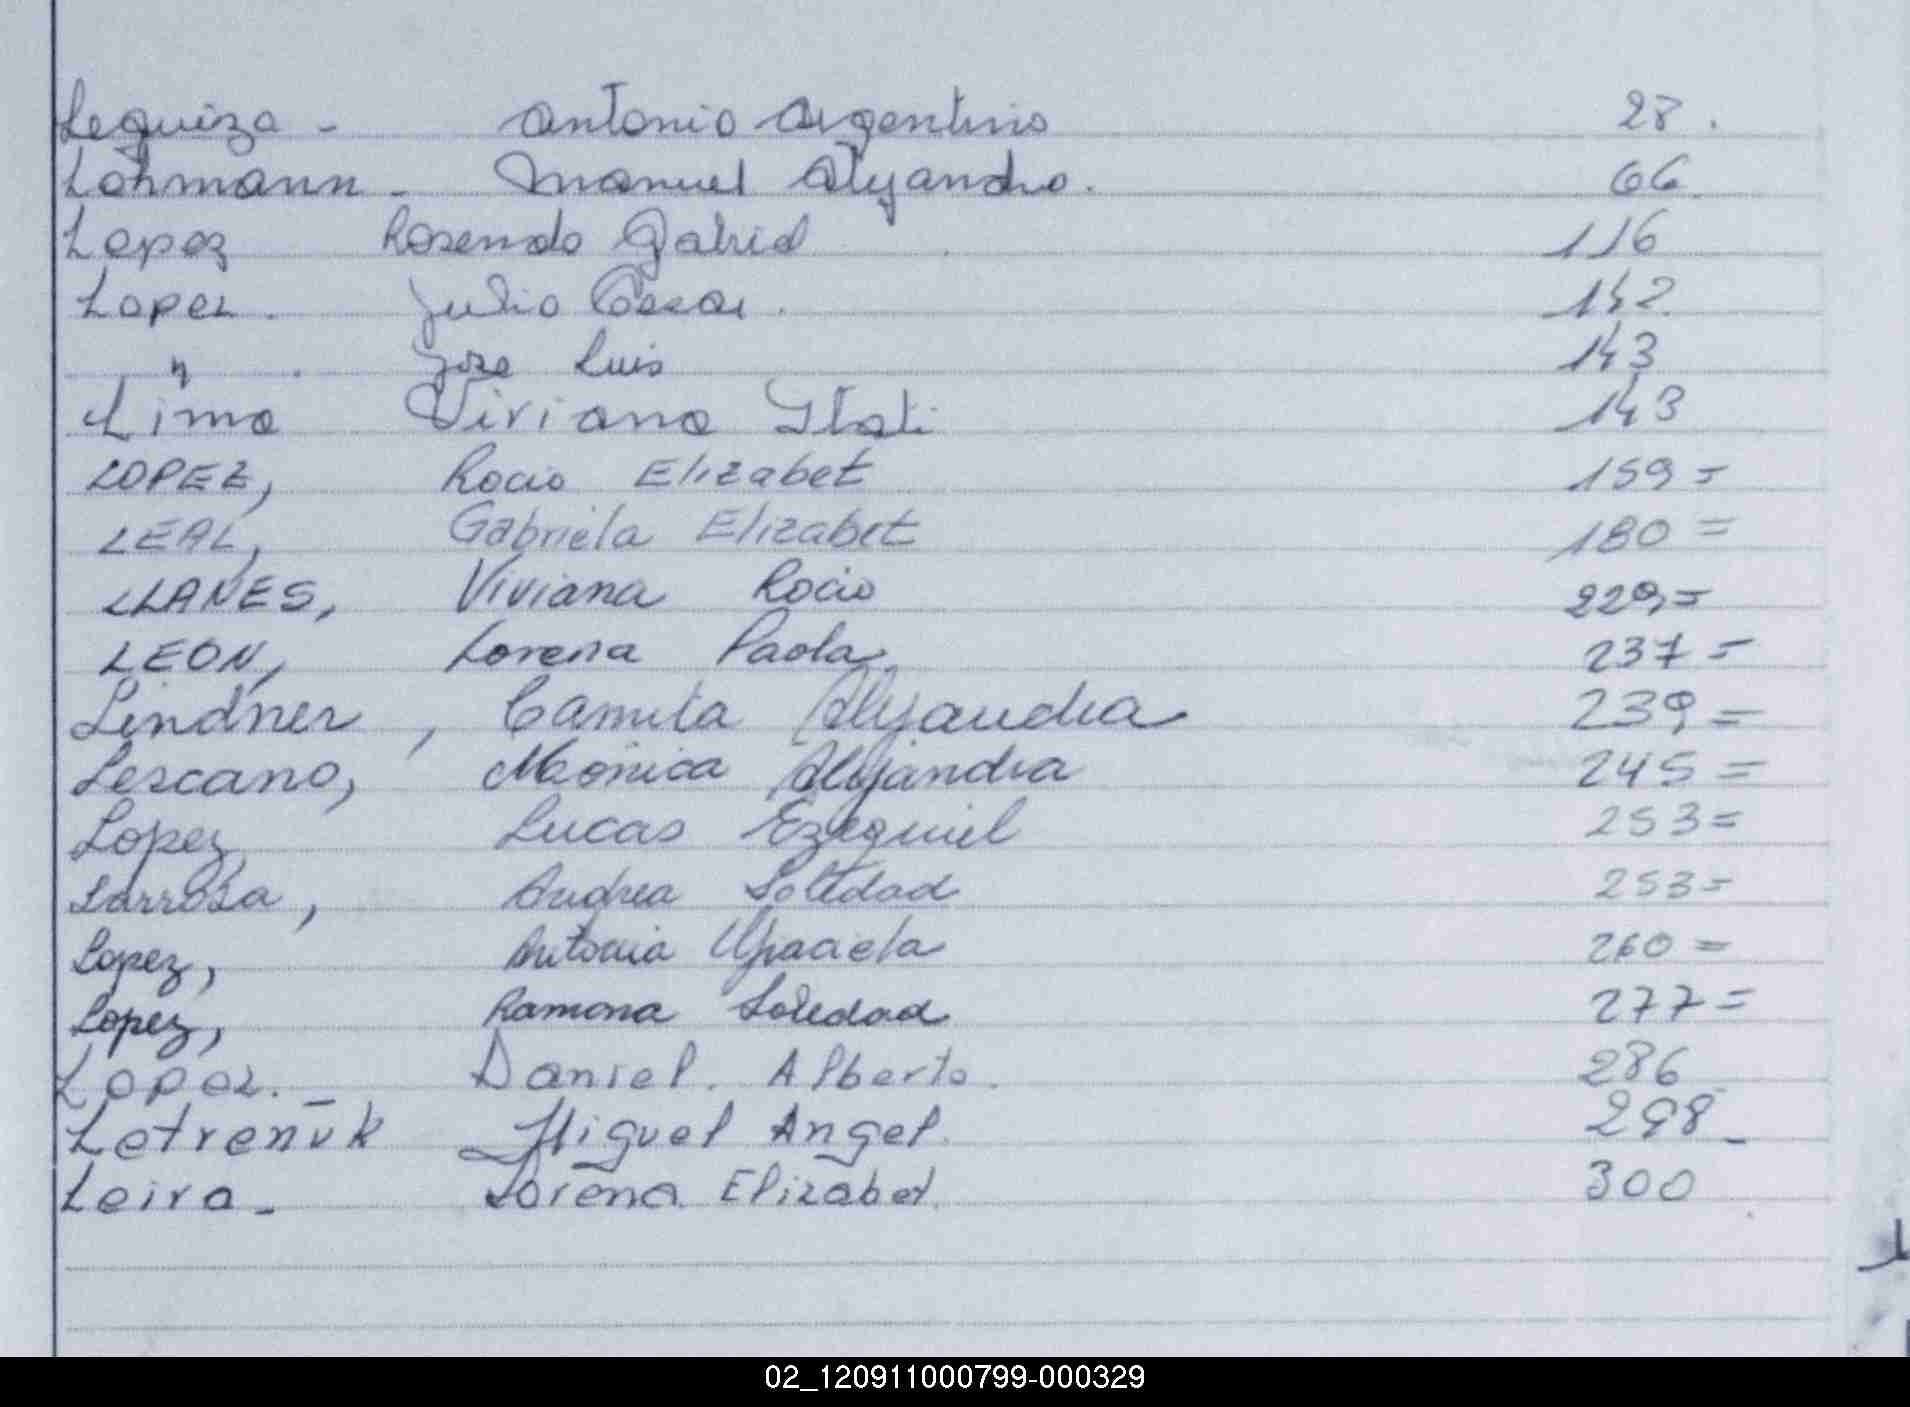 Leguiza - Antonio Argentino 28.
Lohmann - Manuel Alejandro. 66
Lopez Rosendo Gabriel 116
Lopez. Julio Cesar. 142
" . Jose Luis 143
Lima Viviana Itati 143
LOPEZ, Rocio Elizabet 159=
LEAL, Gabriela Elizabet 180=
LLANES, Viviana Rocio 229,=
LEON, Lorena Paola, 237=
Lindner, Camila Alejandra 239,=
Lescano, Monica Alejandra 245=
Lopez, Lucas Ezequiel 253=
Larroza, Andrea Soledad 253=
Lopez, Antonia Graciela 260=
Lopez, Ramona Soledad 277=
Lopez.- Daniel. Alberto. 286
Letrenuk Miguel Angel. 298-
Leiva- Lorena Elizabet. 300
02_120911000799-000329